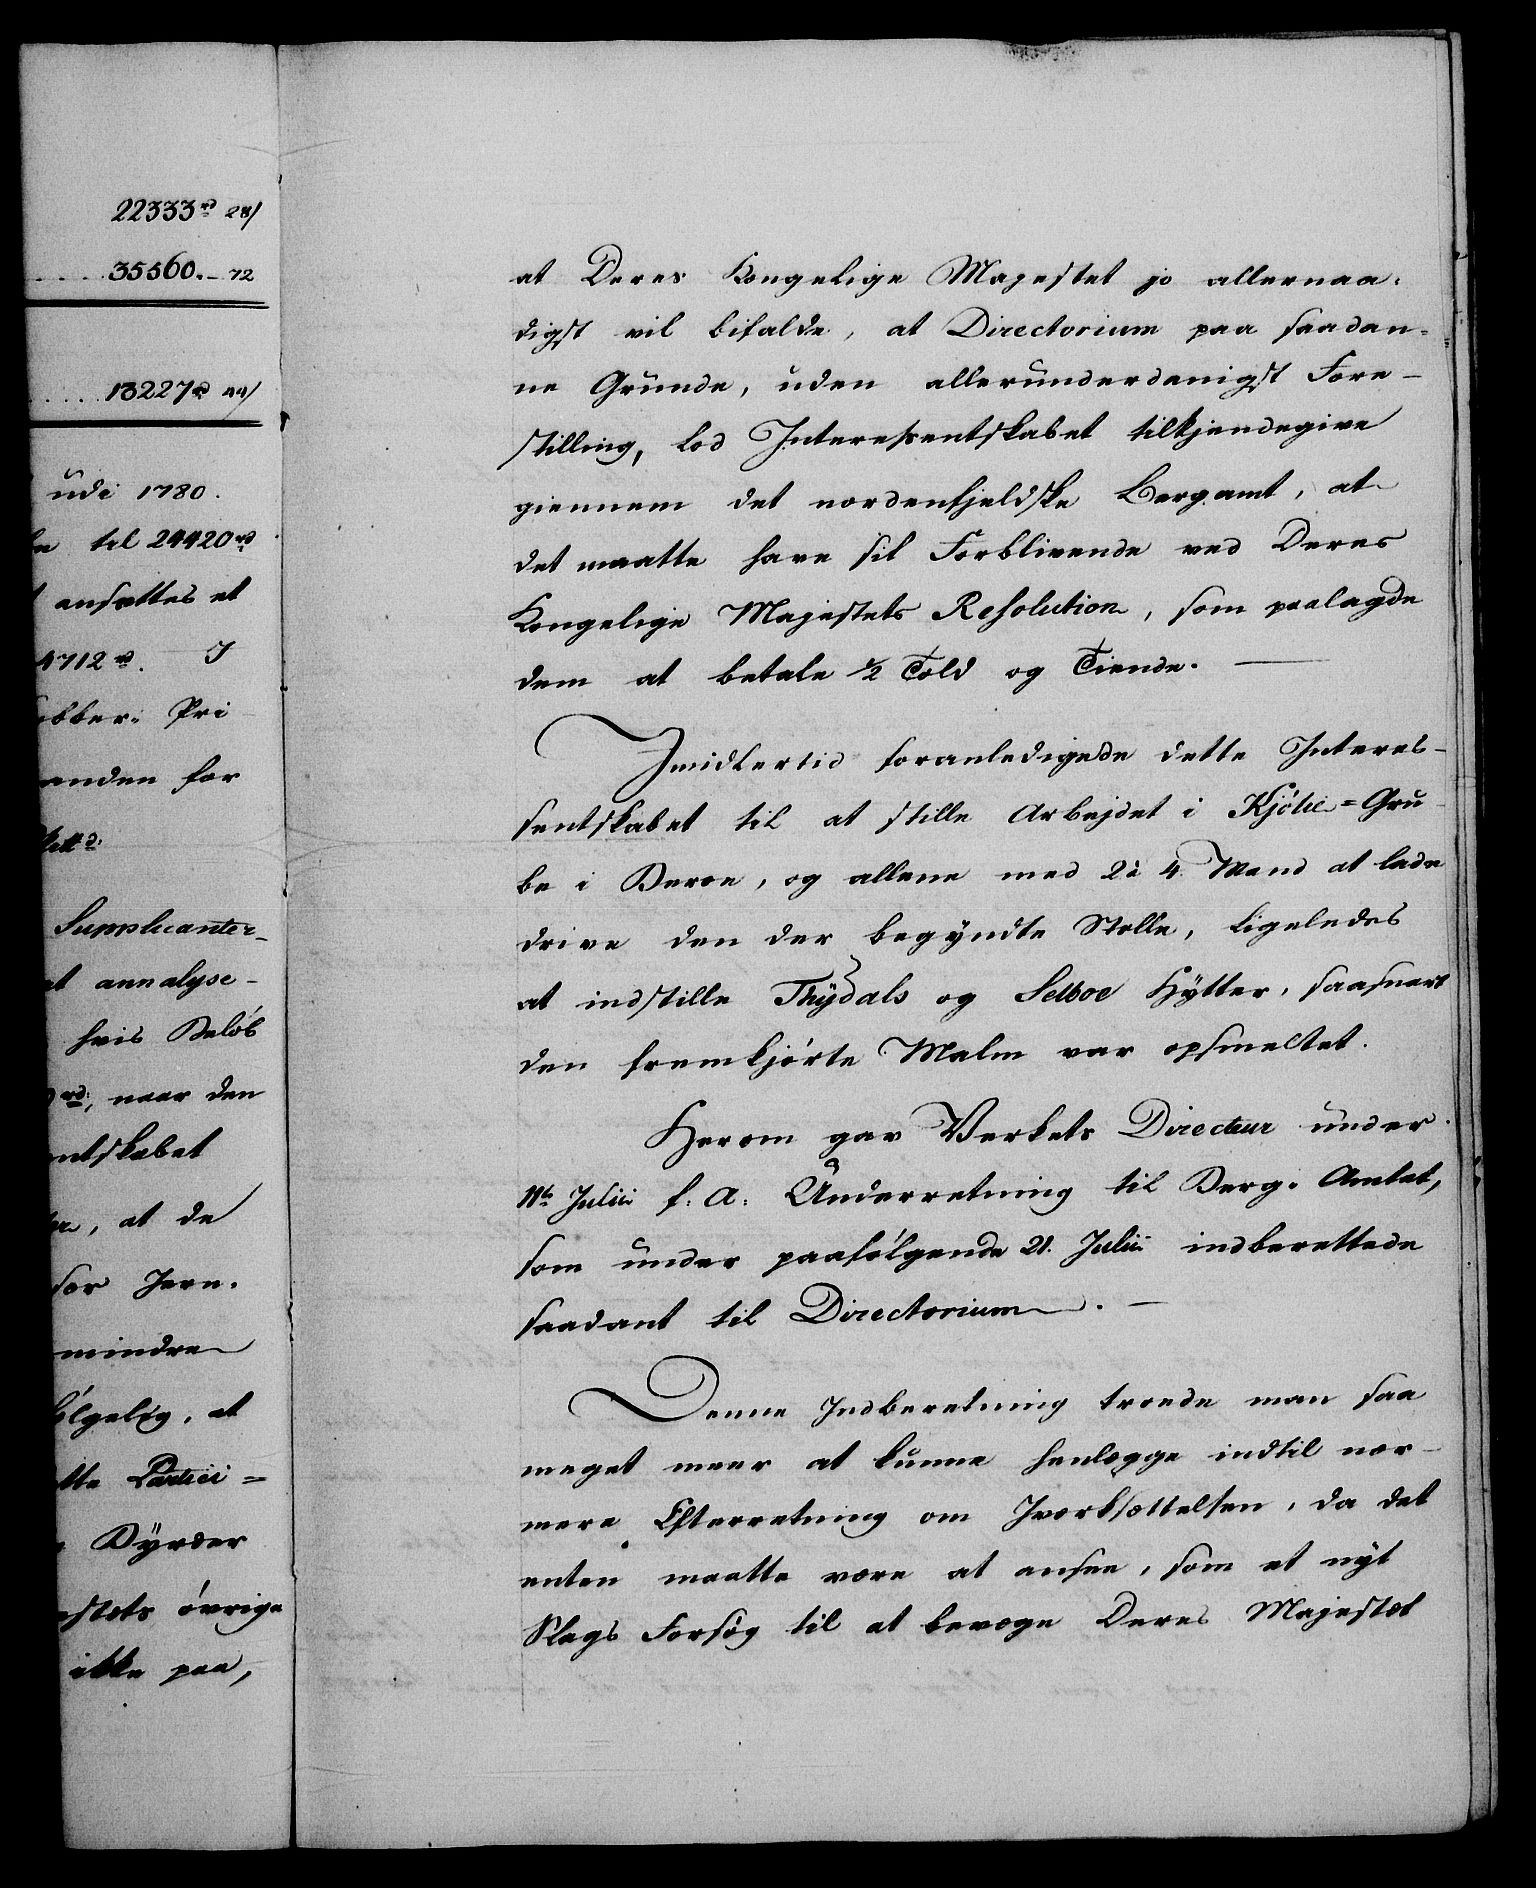 22333 rd 28/
35560. - 72
13227 rd 44/
udi 1780.
til 24420 rd
ansættes et
4712 rd. I
obber: Pri
anden for
Supplicanter-
at annalyse-
hvis Beløb
rd:, naar den
ntskabet
er, at de
for Jern.
mindre
følgelig, at
tte Partici=
Byrder
estets øvrige
ikke paa,
at Deres Kongelige Majestet jo allernaa-
digst vil bifalde, at Directorium paa saadan-
ne Grunde, uden allerunderdanigst Fore-
stilling, lod Interessentskabet tilkjendegive
giennem det nordenfjeldske Bergamt, at
det maatte have sit Forblivende ved Deres
Kongelige Majestets Resolution, som paalagde
dem at betale 1/2 Told og Tiende. —
Imidlertid foranledigede dette Interes-
sentskabet til at stille Arbejdet i Kjølie=Gru
be i Beroe, og allene med 2 à 4 Mand at lade
drive den der begyndte Stolle, ligeledes
at indstille Thydals og Selboe Hytter, saasnart
den fremkjørte Malm var opsmeltet.
Herom gav Verkets Directeur under
11te Julii f. A: Underretning til Berg. Amtet,
som under paafølgende 21. Julii indberettede
saadant til Directorium. —
Denne Indberetning troede man saa
meget meer at kunne henlægge indtil nær-
mere Efterretning om Iværksættelsen, da det
enten maatte være at ansee, som et nyt
Slags Forsøg til at bevæge Deres Majestæt